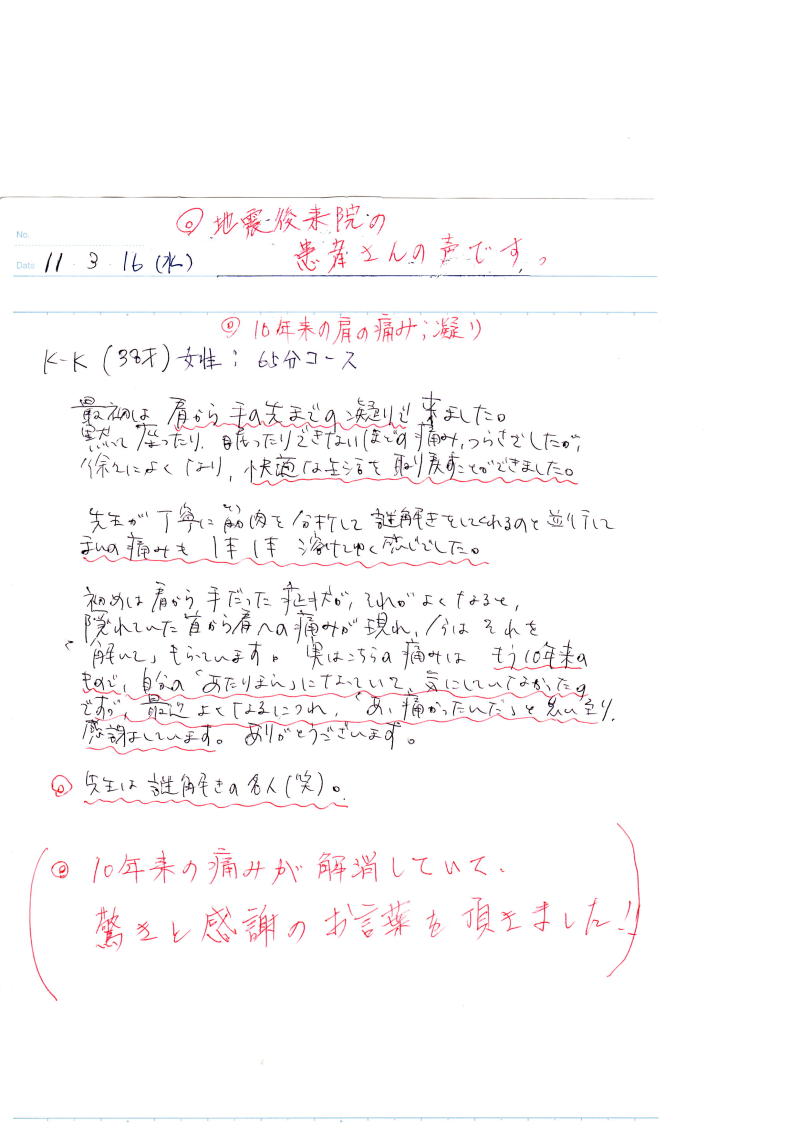 ◎地震後来院の
No.
患者さんの声です。
Date 11・3・16(水)
◎10年来の肩の痛み;凝り
K-K (38才) 女性; 65分コース
最初は肩から手の先までの凝りで来ました。
黙って座ったり、眠ったりできないほどの痛み、つらさでしたが、
徐々によくなり、快適な生活を取り戻すことができました。
先生が丁寧に筋肉を分析して謎解きをしてくれるのと並行して
私の痛みも1本1本溶けてゆく感じでした。
初めは肩から手だった症状が、それがよくなると、
隠れていた首から肩への痛みが現れ、今はそれを
「解いて」もらっています。実はこちらの痛みは もう10年来の
もので、自分の「あたりまえ」になっていて、気にしていなかったの
ですが、最近よくなるにつれ、「あ、痛かったんだ」と思い至り、
感謝しています。ありがとうございます。
◎先生は謎解きの名人(笑)。
◎10年来の痛みが解消していて、
驚きと感謝のお言葉を頂きました!!